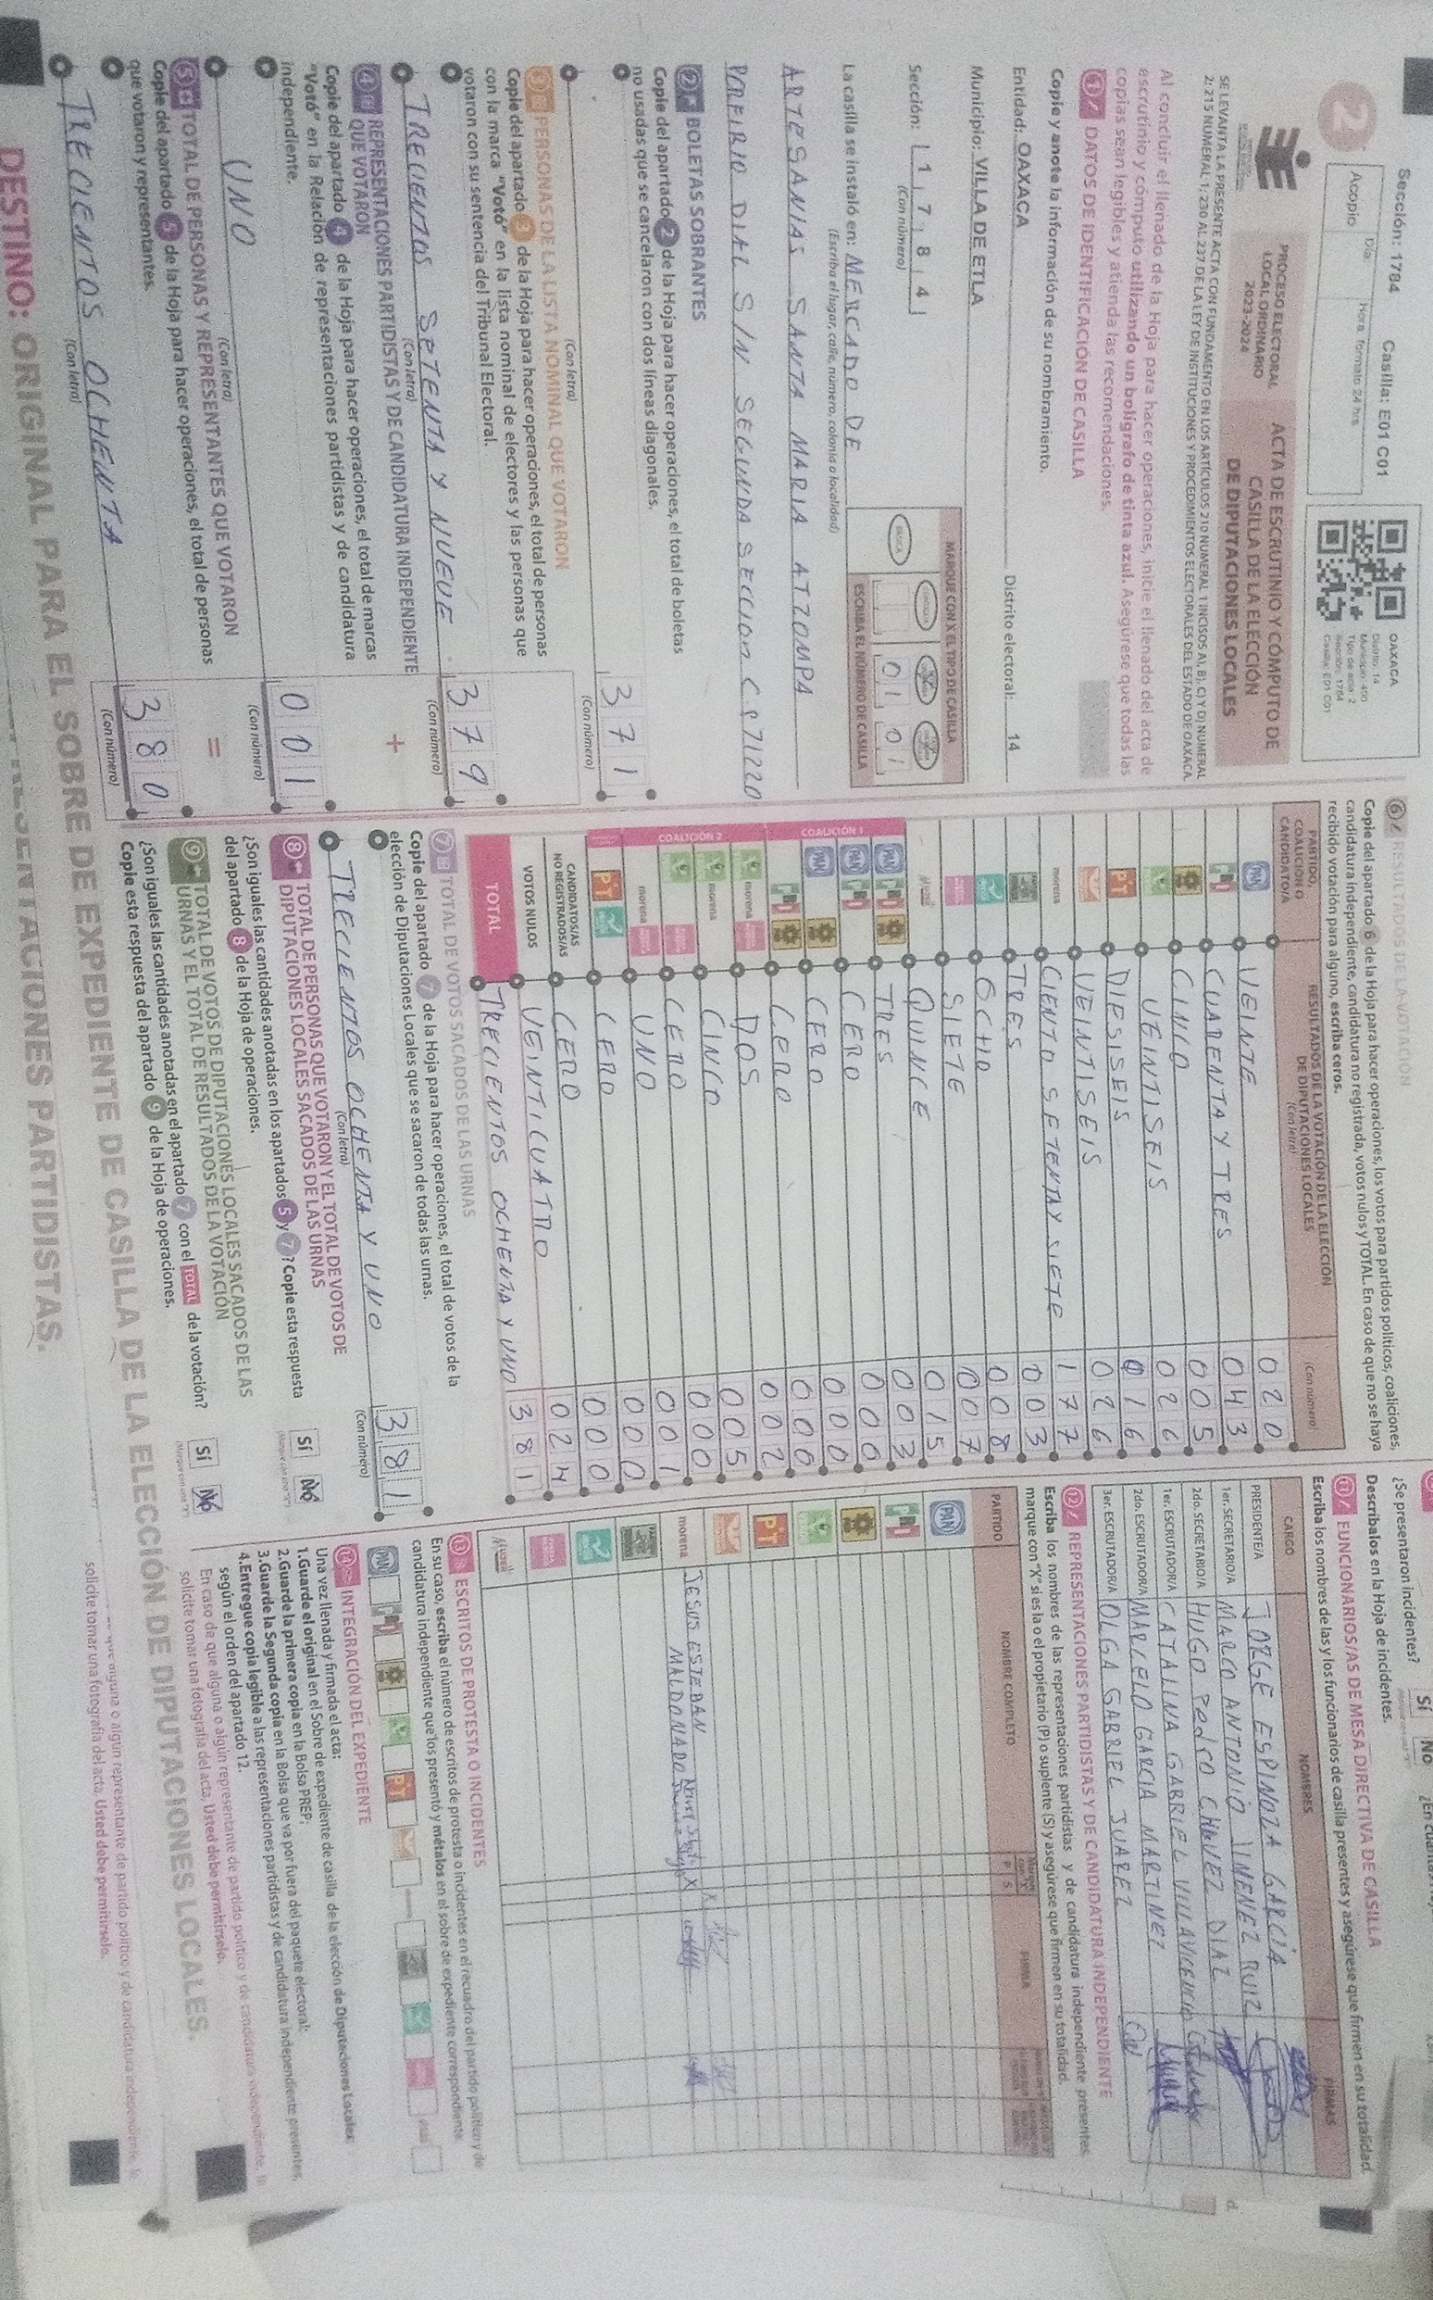 Sección: 1784 Casilla: E01 C01
Acopio
Día:
Hora, formato 24 hrs
2
OAXACA
Distrito: 14
Municipio: 450
Tipo de acta: 2
Sección: 1784
Casilla: E01 C01
PROCESO ELECTORAL
LOCAL ORDINARIO
2023-2024
ACTA DE ESCRUTINIO Y CÓMPUTO DE
CASILLA DE LA ELECCIÓN
DE DIPUTACIONES LOCALES
SE LEVANTA LA PRESENTE ACTA CON FUNDAMENTO EN LOS ARTÍCULOS 210 NUMERAL 1 INCISOS A), B), C) Y D) NUMERAL
2; 215 NUMERAL 1; 230 AL 237 DE LA LEY DE INSTITUCIONES Y PROCEDIMIENTOS ELECTORALES DEL ESTADO DE OAXACA.
Al concluir el llenado de la Hoja para hacer operaciones, inicie el llenado del acta de
escrutinio y cómputo utilizando un bolígrafo de tinta azul. Asegúrese que todas las
copias sean legibles y atienda las recomendaciones.
1 DATOS DE IDENTIFICACIÓN DE CASILLA
Copie y anote la información de su nombramiento.
Entidad: OAXACA Distrito electoral: 14
Municipio: VILLA DE ETLA
Sección: 1 7 8 4
(Con número)
MARQUE CON X EL TIPO DE CASILLA
BÁSICA
ESCRIBA EL NÚMERO DE CASILLA
0 1 0 1
La casilla se instaló en: MERCADO DE
(Escriba el lugar, calle, número, colonia o localidad)
ARTESANIAS SANTA MARIA ATZOMPA
PORFIRIO DIAZ S/N SEGUNDA SECCION CP 71220
2 BOLETAS SOBRANTES
Copie del apartado 2 de la Hoja para hacer operaciones, el total de boletas
no usadas que se cancelaron con dos líneas diagonales.
3 7 1
(Con letra) (Con número)
3 PERSONAS DE LA LISTA NOMINAL QUE VOTARON
Copie del apartado 3 de la Hoja para hacer operaciones, el total de personas
con la marca "Votó" en la lista nominal de electores y las personas que
votaron con su sentencia del Tribunal Electoral.
TRECIENTOS SETENTA Y NUEVE 3 7 9
(Con letra) (Con número)
+
4 REPRESENTACIONES PARTIDISTAS Y DE CANDIDATURA INDEPENDIENTE
QUE VOTARON
Copie del apartado 4 de la Hoja para hacer operaciones, el total de marcas
"Votó" en la Relación de representaciones partidistas y de candidatura
independiente.
UNO 0 0 1
(Con letra) (Con número)
=
5 TOTAL DE PERSONAS Y REPRESENTANTES QUE VOTARON
Copie del apartado 5 de la Hoja para hacer operaciones, el total de personas
que votaron y representantes.
TRECIENTOS OCHENTA 3 8 0
(Con letra) (Con número)
6 RESULTADOS DE LA VOTACIÓN
Copie del apartado 6 de la Hoja para hacer operaciones, los votos para partidos políticos, coaliciones,
candidatura independiente, candidatura no registrada, votos nulos y TOTAL. En caso de que no se haya
recibido votación para alguno, escriba ceros.
PARTIDO,
COALICIÓN O
CANDIDATO/A
RESULTADOS DE LA VOTACIÓN DE LA ELECCIÓN
DE DIPUTACIONES LOCALES
(Con letra)
(Con número)
PAN VEINTE 0 2 0
PRI CUARENTA Y TRES 0 4 3
CINCO 0 0 5
VEINTISEIS 0 2 6
PT DIESISEIS 0 1 6
VEINTISEIS 0 2 6
morena CIENTO SETENTA Y SIETE 1 7 7
TRES 0 0 3
OCHO 0 0 8
SIETE 0 0 7
QUINCE 0 1 5
COALICIÓN 1
PAN PRI TRES 0 0 3
PAN PRI CERO 0 0 0
PAN CERO 0 0 0
PRI CERO 0 0 0
COALICIÓN 2
morena DOS 0 0 2
morena CINCO 0 0 5
CERO 0 0 0
morena UNO 0 0 1
PT CERO 0 0 0
CANDIDATOS/AS
NO REGISTRADOS/AS CERO 0 0 0
VOTOS NULOS VEINTICUATRO 0 2 4
TOTAL TRECIENTOS OCHENTA Y UNO 3 8 1
7 TOTAL DE VOTOS SACADOS DE LAS URNAS
Copie del apartado 7 de la Hoja para hacer operaciones, el total de votos de la
elección de Diputaciones Locales que se sacaron de todas las urnas.
TRECIENTOS OCHENTA Y UNO 3 8 1
(Con letra) (Con número)
8 TOTAL DE PERSONAS QUE VOTARON Y EL TOTAL DE VOTOS DE
DIPUTACIONES LOCALES SACADOS DE LAS URNAS
¿Son iguales las cantidades anotadas en los apartados 5 y 7? Copie esta respuesta
del apartado 8 de la Hoja de operaciones.
Sí No
9 TOTAL DE VOTOS DE DIPUTACIONES LOCALES SACADOS DE LAS
URNAS Y EL TOTAL DE RESULTADOS DE LA VOTACIÓN
¿Son iguales las cantidades anotadas en el apartado 7 con el TOTAL de la votación?
Copie esta respuesta del apartado 9 de la Hoja de operaciones.
Sí No
¿Se presentaron incidentes? Sí No
Descríbalos en la Hoja de incidentes.
11 FUNCIONARIOS/AS DE MESA DIRECTIVA DE CASILLA
Escriba los nombres de las y los funcionarios de casilla presentes y asegúrese que firmen en su totalidad.
CARGO NOMBRES FIRMAS
PRESIDENTE/A JORGE ESPINOZA GARCIA
1er. SECRETARIO/A MARCO ANTONIO JIMENEZ RUIZ
2do. SECRETARIO/A HUGO PEDRO CHAVEZ DIAZ
1er. ESCRUTADOR/A CATALINA GABRIEL VILLAVICENCIO
2do. ESCRUTADOR/A MARCELO GARCIA MARTINEZ
3er. ESCRUTADOR/A OLGA GABRIEL SUAREZ
12 REPRESENTACIONES PARTIDISTAS Y DE CANDIDATURA INDEPENDIENTE
Escriba los nombres de las representaciones partidistas y de candidatura independiente presentes,
marque con "X" si es la o el propietario (P) o suplente (S) y asegúrese que firmen en su totalidad.
PARTIDO NOMBRE COMPLETO P S FIRMA
PAN
PRI
PT
morena JESUS ESTEBAN
MALDONADO
X
13 ESCRITOS DE PROTESTA O INCIDENTES
En su caso, escriba el número de escritos de protesta o incidentes en el recuadro del partido político y de
candidatura independiente que los presentó y métalos en el sobre de expediente correspondiente.
PAN PRI PT
14 INTEGRACIÓN DEL EXPEDIENTE
Una vez llenada y firmada el acta:
1.Guarde el original en el Sobre de expediente de casilla de la elección de Diputaciones Locales;
2.Guarde la primera copia en la Bolsa PREP;
3.Guarde la Segunda copia en la Bolsa que va por fuera del paquete electoral;
4.Entregue copia legible a las representaciones partidistas y de candidatura independiente presentes,
según el orden del apartado 12.
En caso de que alguna o algún representante de partido político y de candidatura independiente,
solicite tomar una fotografía del acta, Usted debe permitírselo.
DESTINO: ORIGINAL PARA EL SOBRE DE EXPEDIENTE DE CASILLA DE LA ELECCIÓN DE DIPUTACIONES LOCALES.
alguna o algún representante de partido político y de candidatura independiente,
solicite tomar una fotografía del acta, Usted debe permitírselo.
PARTIDISTAS.